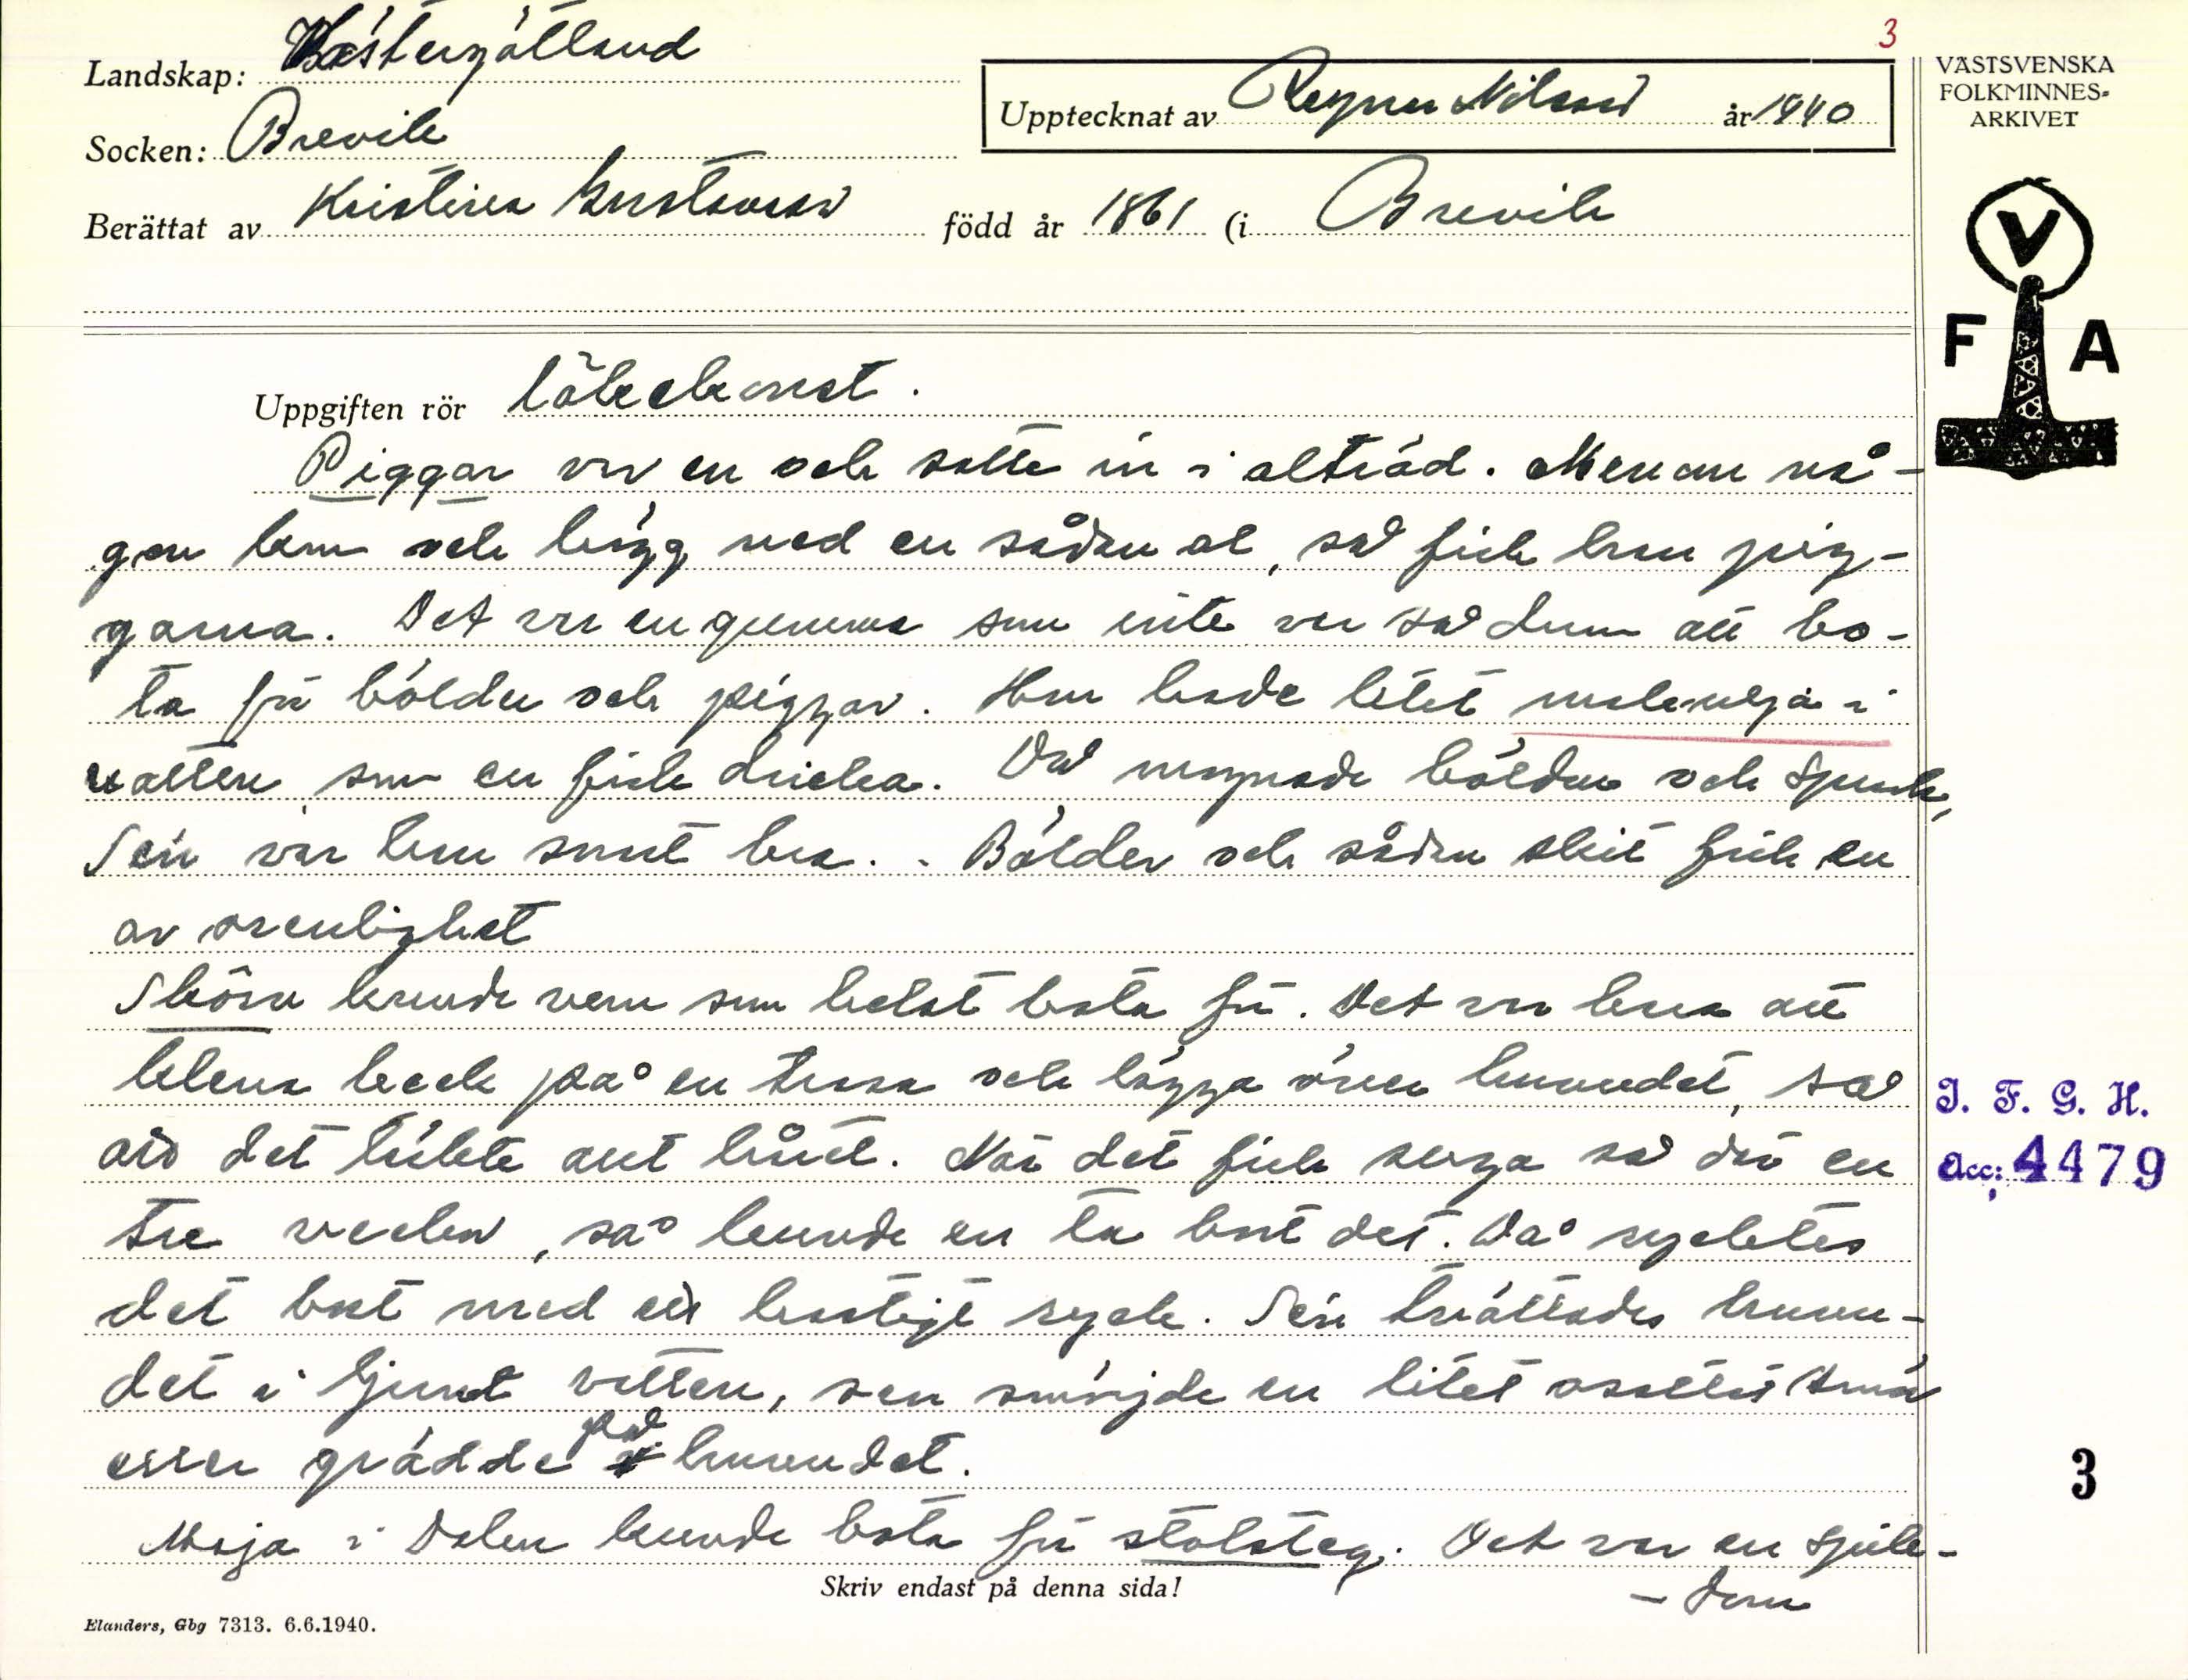 3
Landskap: Västergötland
Upptecknat av Ragnar Nilsson år 1940
VÄSTSVENSKA
FOLKMINNES-
ARKIVET
Socken: Brevik
Berättat av Kristina Gustavsson född år 1861 (i Brevik
V
F A
Uppgiften rör läkekonst.
Piggar vrv en och satte in i alträd. Men om nå-
gon kom och högg ned en sådan al, så fick han pig-
garna. Det var en gumma som inte var så dum att bo-
ta för bölder och piggar. Hon hade litet i
vatten som en fick dricka. Då mognade bölden och sprack,
Sen var hon snart bra. - Bölder och sådan skit fick en
av orenlighet
Skörv kunde vem som helst bota för. Det var bara att
klena beck på en trasa och lägga över huvudet, så
att det täckte allt håret. När det fick suga så där en
tre veckor, så kunde en ta bort det. Då rycktes
det bort med ett hastigt ryck. Sen tvättades huvu-
det i ljumt vatten, sen smörjde en litet osaltat smör
eller grädde på huvudet.
Maja i Dalen kunde bota för stolsteg. Det var en sjuk-
- dom
Skriv endast på denna sida!
I. F. G. H.
Acc: 4479
3
Elanders, Gbg 7313. 6.6.1940.